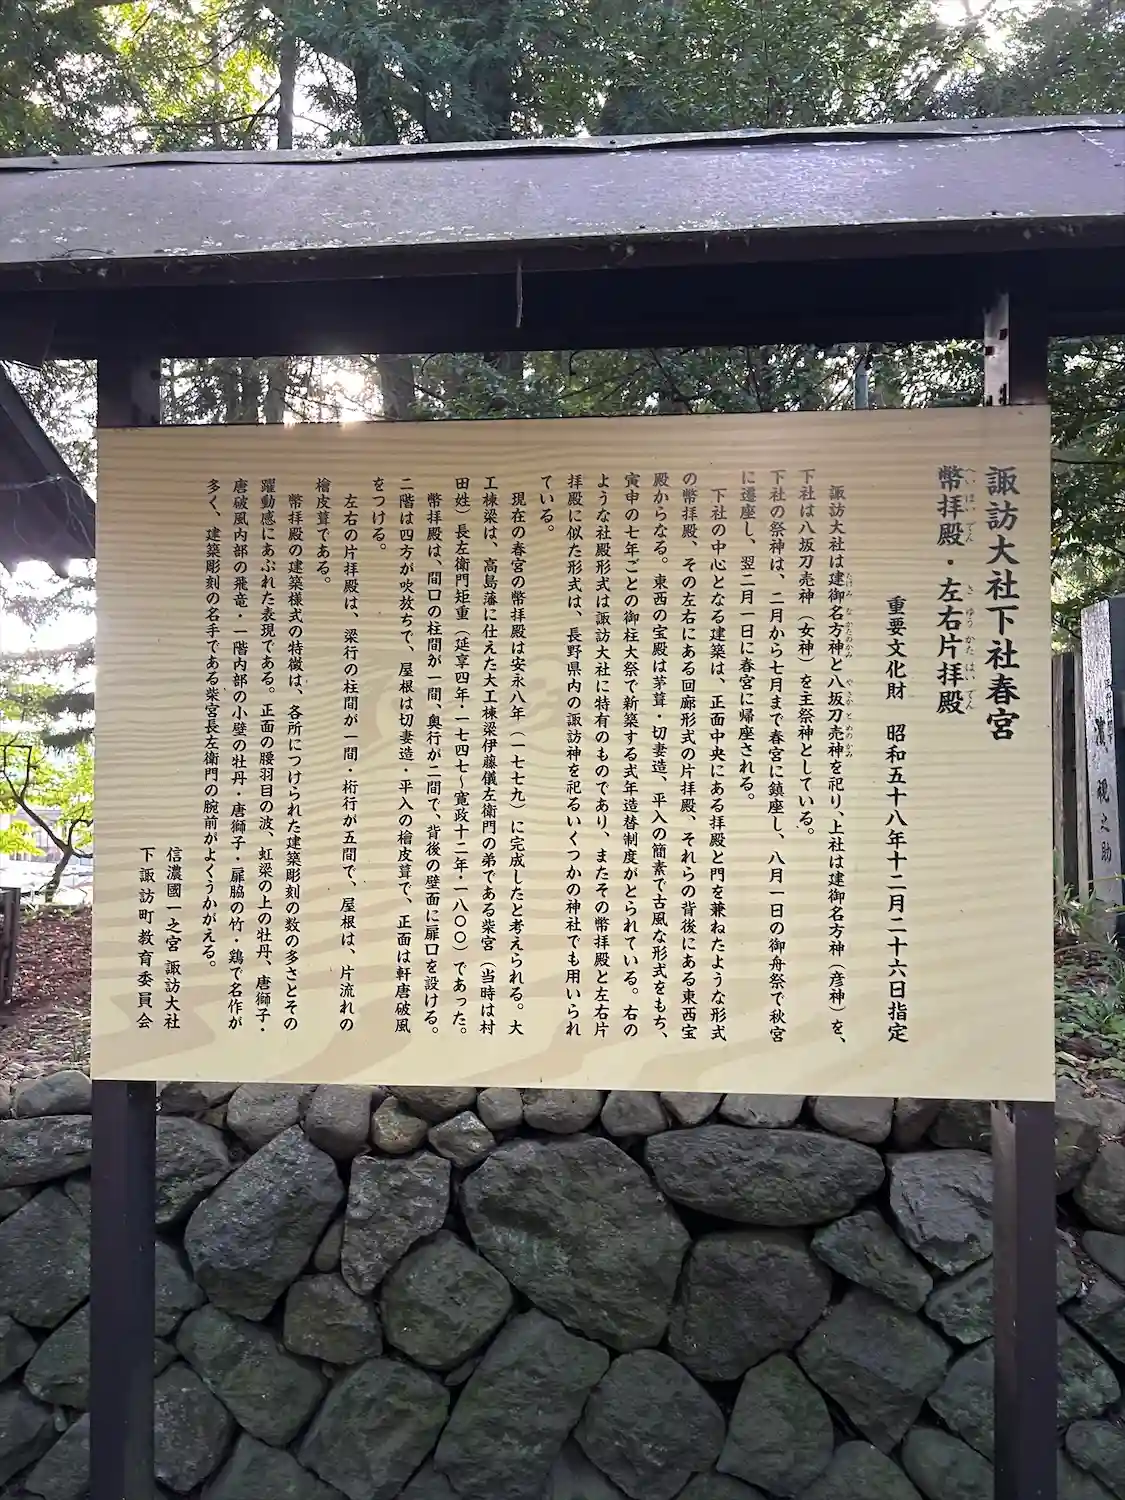 諏訪大社下社春宮
幣拝殿・左右片拝殿
へいはいでん さゆうかたはいでん
重要文化財 昭和五十八年十二月二十六日指定
諏訪大社は建御名方神と八坂刀売神を祀り、上社は建御名方神（彦神）を、
たけみなかたのかみ やさかとめのかみ
下社は八坂刀売神（女神）を主祭神としている。
下社の祭神は、二月から七月まで春宮に鎮座し、八月一日の御舟祭で秋宮
に遷座し、翌二月一日に春宮に帰座される。
下社の中心となる建築は、正面中央にある拝殿と門を兼ねたような形式
の幣拝殿、その左右にある回廊形式の片拝殿、それらの背後にある東西宝
殿からなる。東西の宝殿は茅葺・切妻造、平入の簡素で古風な形式をもち、
寅申の七年ごとの御柱大祭で新築する式年造替制度がとられている。右の
ような社殿形式は諏訪大社に特有のものであり、またその幣拝殿と左右片
拝殿に似た形式は、長野県内の諏訪神を祀るいくつかの神社でも用いられ
ている。
現在の春宮の幣拝殿は安永八年（一七七九）に完成したと考えられる。大
工棟梁は、高島藩に仕えた大工棟梁伊藤儀左衛門の弟である柴宮（当時は村
田姓）長左衛門矩重（延享四年・一七四七〜寛政十二年・一八〇〇）であった。
幣拝殿は、間口の柱間が一間、奥行が二間で、背後の壁面に扉口を設ける。
二階は四方が吹放ちで、屋根は切妻造・平入の檜皮葺で、正面は軒唐破風
をつける。
左右の片拝殿は、梁行の柱間が一間・桁行が五間で、屋根は、片流れの
檜皮葺である。
幣拝殿の建築様式の特徴は、各所につけられた建築彫刻の数の多さとその
躍動感にあふれた表現である。正面の腰羽目の波、虹梁の上の牡丹、唐獅子・
唐破風内部の飛竜・一階内部の小壁の牡丹・唐獅子・扉脇の竹・鶏で名作が
多く、建築彫刻の名手である柴宮長左衛門の腕前がよくうかがえる。
信濃國一之宮 諏訪大社
下諏訪町教育委員会
親之助